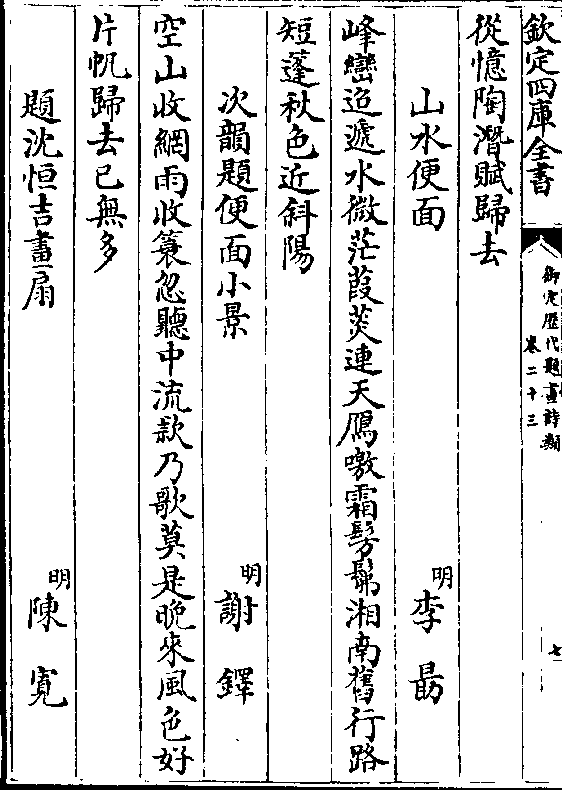 欽定四庫全書
御定歴代題畫詩類
卷二十三
七
從憶陶潛賦歸去
山水便面 明 李 勗
峰巒迢遞水微茫葭菼連天鴈嗷霜髣髴湘南舊行路
短蓬秋色近斜陽
次韻題便面小景 明 謝 鐸
空山收網雨收蓑忽聽中流欵乃歌莫是晚來風色好
片帆歸去已無多
題沈恒吉畫扇 明 陳 寛